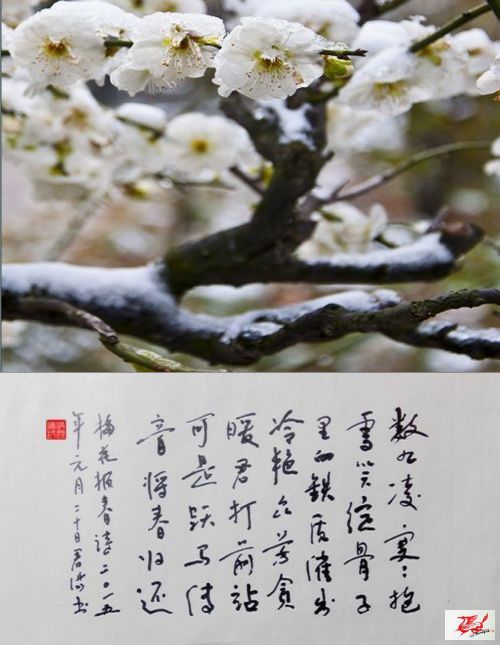 数九凌寒抱
雪笑绽骨子
里的铁催出
冷艳为贪
暖君打前站
可是跃马传
音将春归还
梅花报春诗二〇一五
年元月二十日君书